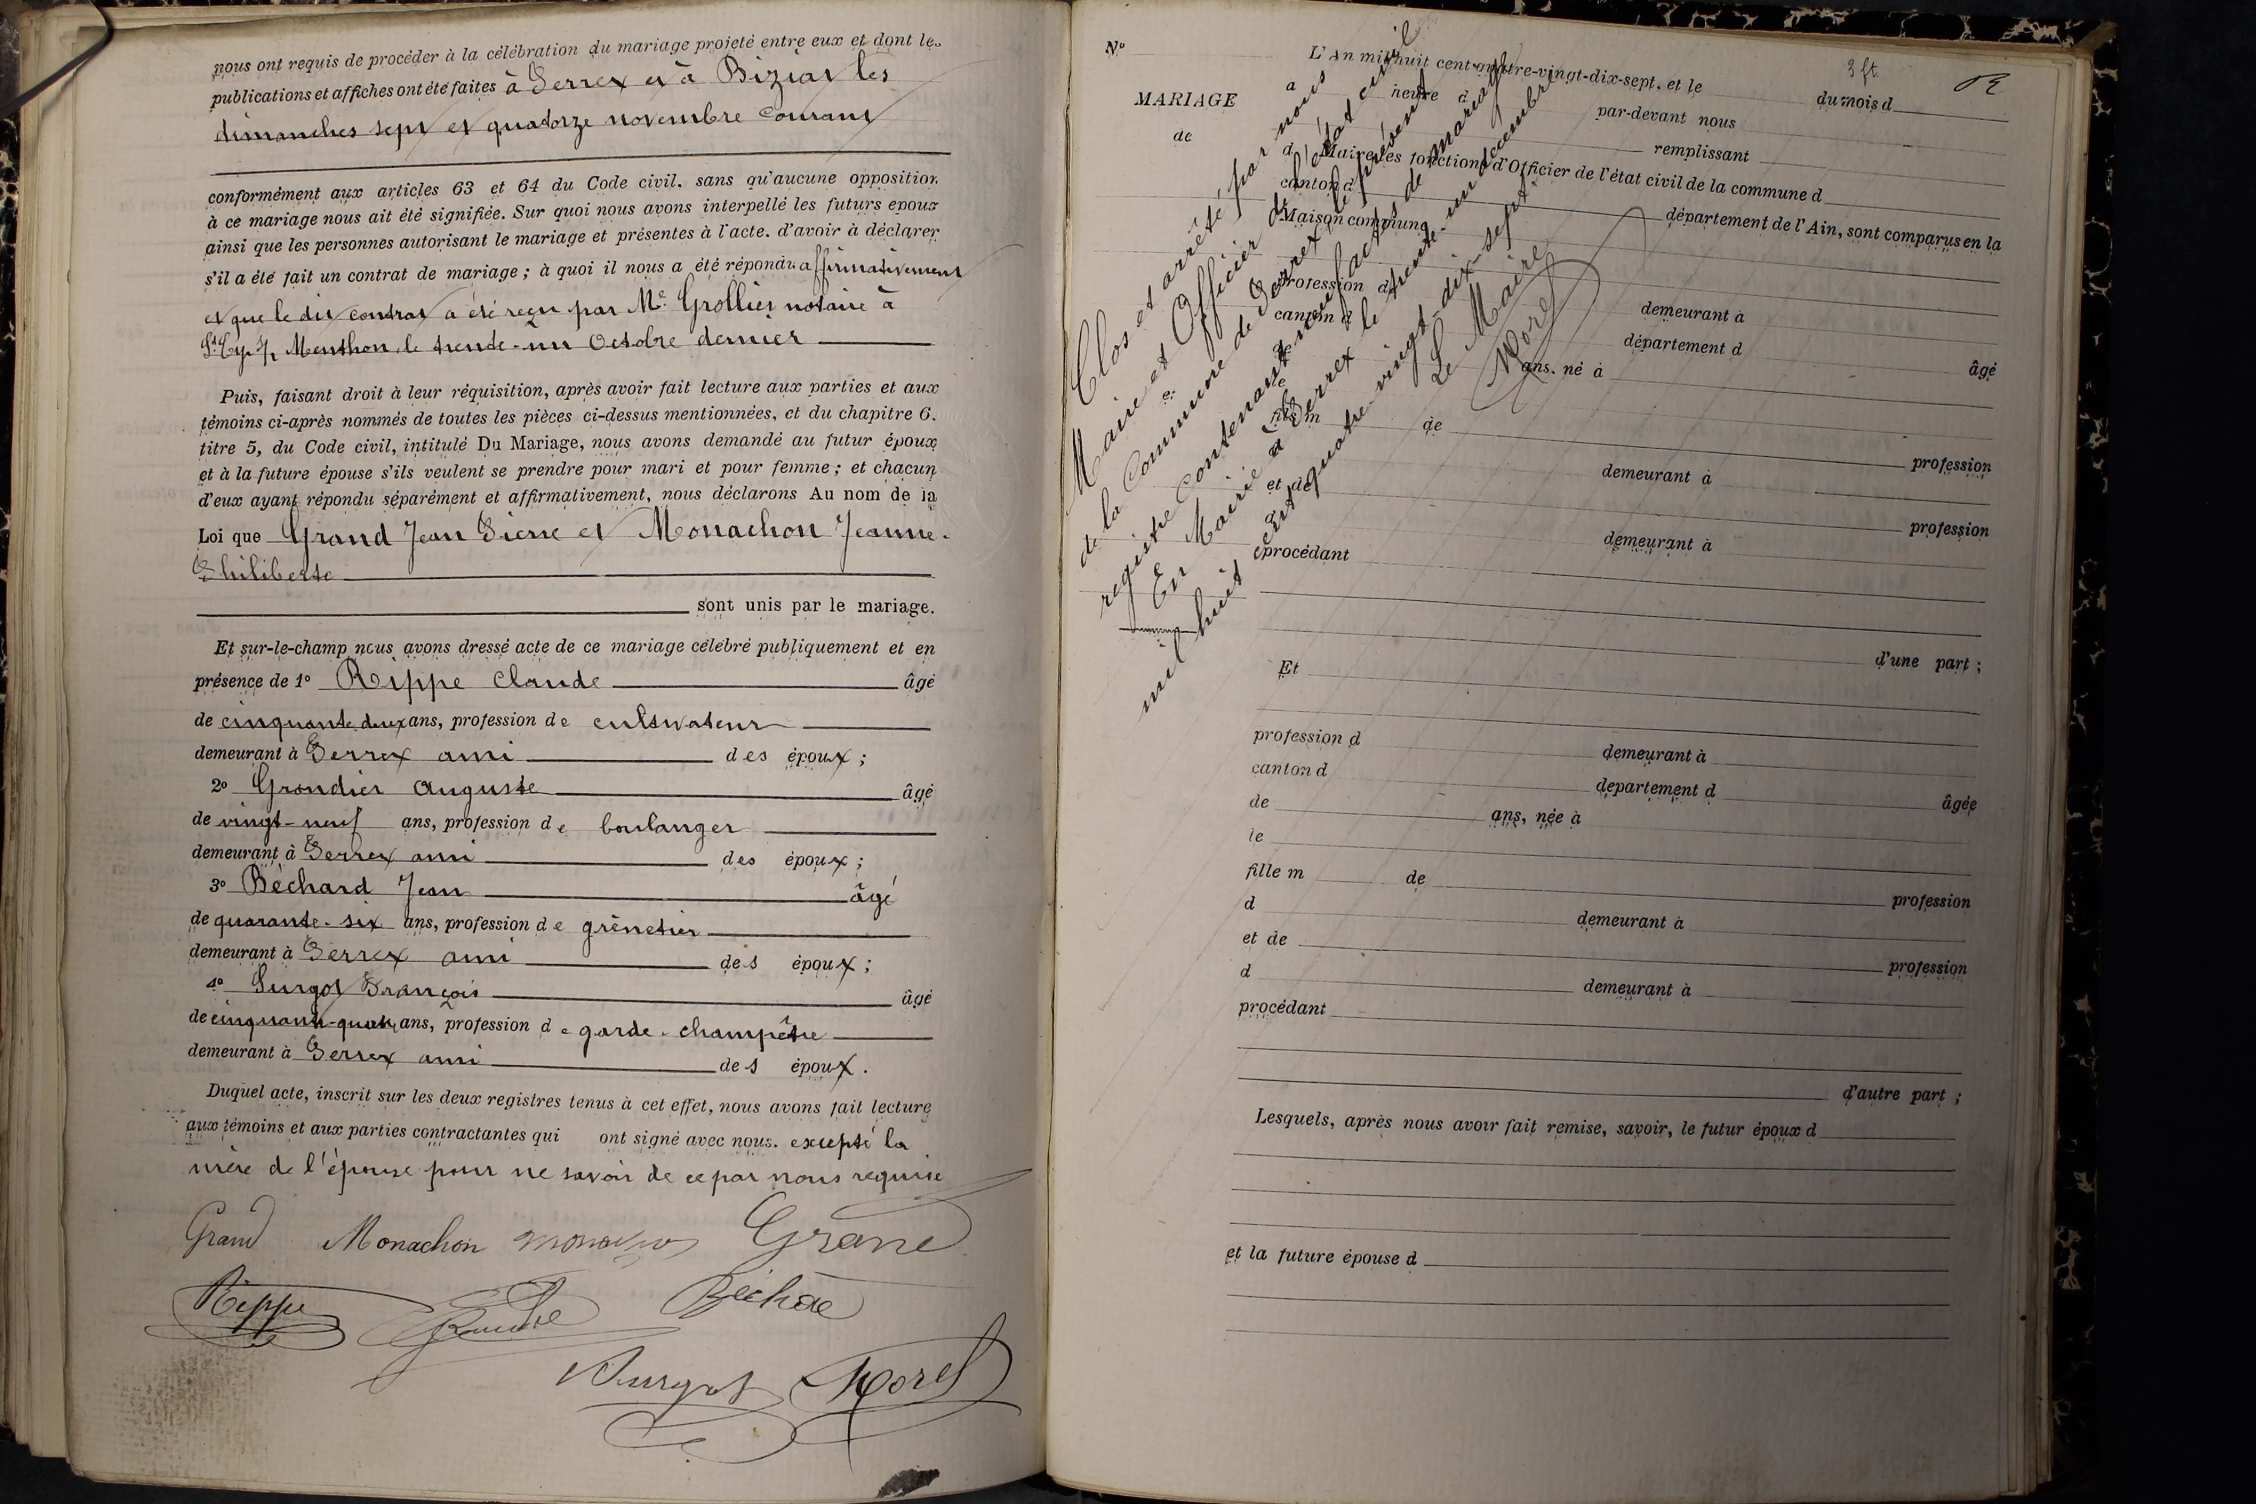 nous ont requis de procéder à la célébration du mariage projeté entre eux et dont les
publications et affiches ont été faites à Perrex et à Biziat les
dimanches sept et quatorze novembre courant
conformément aux articles 63 et 64 du Code civil, sans qu'aucune opposition
à ce mariage nous ait été signifiée. Sur quoi nous avons interpellé les futurs époux
ainsi que les personnes autorisant le mariage et présentes à l'acte, d'avoir à déclarer
s'il a été fait un contrat de mariage ; à quoi il nous a été répondu affirmativement
et que le dit contrat a été reçu par Me Grollier notaire à
St Cyr s/ Menthon, le trente-un Octobre dernier
Puis, faisant droit à leur réquisition, après avoir fait lecture aux parties et aux
témoins ci-après nommés de toutes les pièces ci-dessus mentionnées, et du chapitre 6.
titre 5, du Code civil, intitulé Du Mariage, nous avons demandé au futur époux
et à la future épouse s'ils veulent se prendre pour mari et pour femme ; et chacun
d'eux ayant répondu séparément et affirmativement, nous déclarons Au nom de la
Loi que Grand Jean Pierre et Monachon Jeanne-
Philiberte
sont unis par le mariage.
Et sur-le-champ nous avons dressé acte de ce mariage célébré publiquement et en
présence de 1° Rippe Claude âgé
de cinquante deux ans, profession de cultivateur
demeurant à Perrex ami des époux ;
2° Grondier Auguste âgé
de vingt-neuf ans, profession de boulanger
demeurant à Perrex ami des époux ;
3° Béchard Jean âgé
de quarante-six ans, profession de grènetier
demeurant à Perrex ami des époux ;
4° Surgot François âgé
de cinquante-quatre ans, profession de garde-champêtre
demeurant à Perrex ami des époux.
Duquel acte, inscrit sur les deux registres tenus à cet effet, nous avons fait lecture
aux témoins et aux parties contractantes qui ont signé avec nous. excepté la
mère de l'épouse pour ne savoir de ce par nous requise
Grand Monachon Monachon Grand
Rippe
Surgot Morel
3 ft.
N°
MARIAGE
de
et
L'An mil huit cent quatre-vingt-dix-sept, et le du mois d
à heure d par-devant nous
remplissant
d Maire les fonctions d'Officier de l'état civil de la commune d
canton d département de l'Ain, sont comparus en la
Maison commune
profession d demeurant à
canton d département d âgé
de ans, né à
le
fils m de profession
d demeurant à
et de profession
d demeurant à
procédant
d'une part ;
Et
profession d demeurant à
canton d département d âgée
de ans, née à
le
fille m de profession
d demeurant à
et de profession
d demeurant à
procédant
d'autre part ;
Lesquels, après nous avoir fait remise, savoir, le futur époux d
et la future épouse d
Clos et arrêté par nous
Maire et Officier de l'état civil
de la Commune de Perrex le présent
registre contenant neuf actes de mariage
En Mairie à Perrex le trente-un décembre
mil huit cent quatre-vingt-dix-sept.
Le Maire
Morel